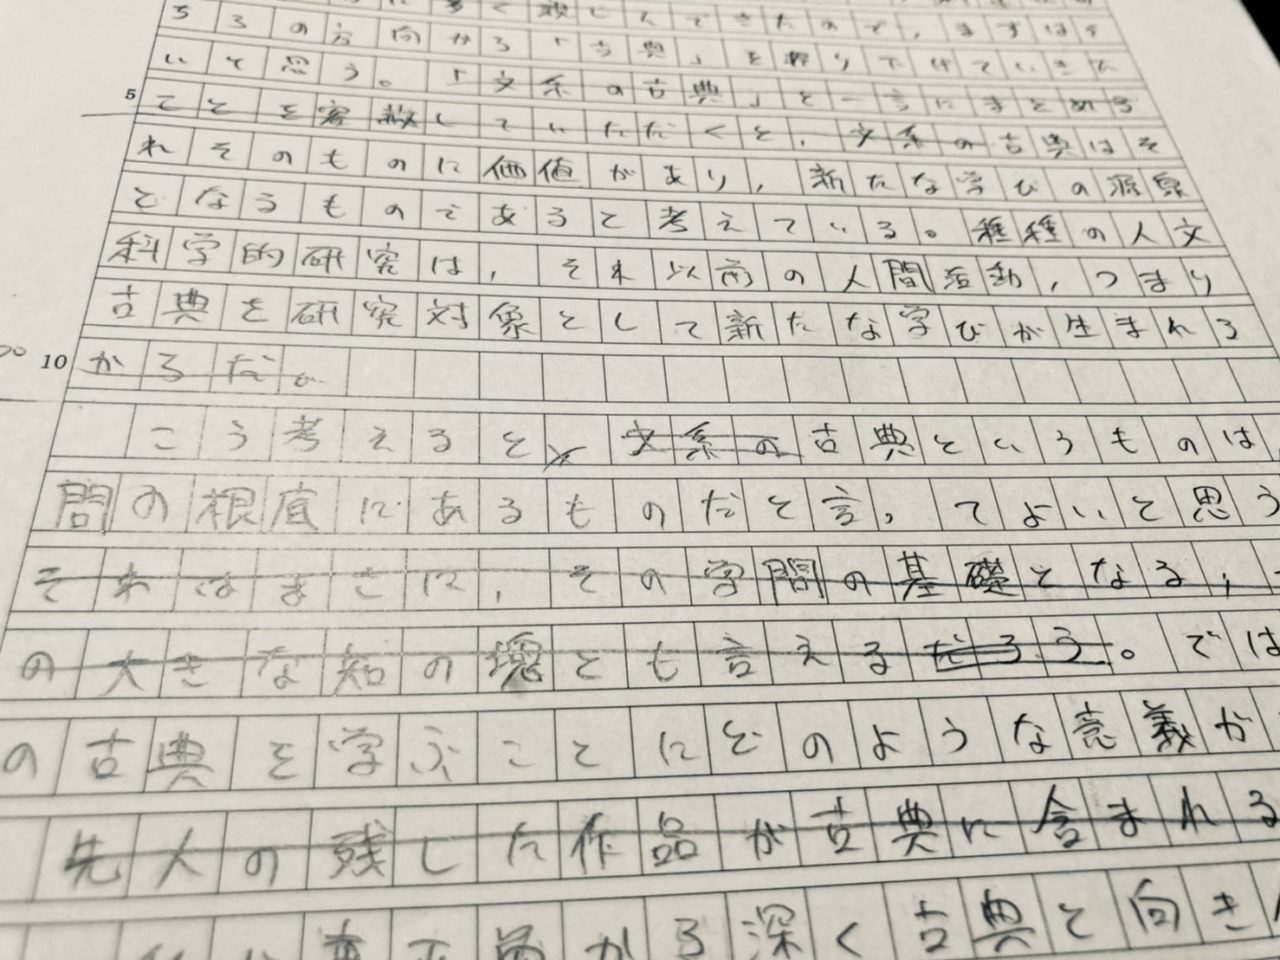 ちらの方向から「古典」を掘り下げていきた
いと思う。「文系の古典」と一言にまとめる
ことを容赦していただくと,文系の古典はそ
5
れそのものに価値があり,新たな学びの源泉
となるものであると考えている。種種の人文
科学的研究は,それ以前の人間活動,つまり
古典を研究対象として新たな学びが生まれる
10
からだ。
こう考えると文系の古典というものは
問の根底にあるものだと言ってよいと思う
それはまさに,その学問の基礎となる,
の大きな知の塊とも言えるだろう。では
の古典を学ぶことにどのような意義が
先人の残した作品が古典に含まれる
から深く古典と向き